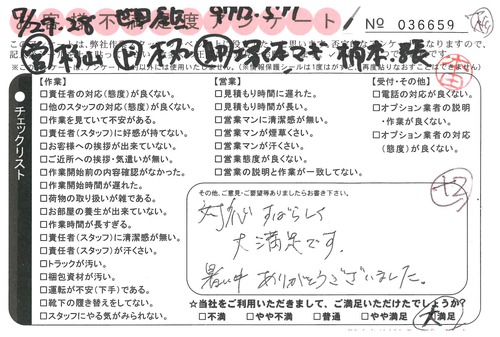 お客様不満足度アンケート
No 036659
チェックリスト
【作業】
□責任者の対応(態度)が良くない。
□他のスタッフの対応(態度)が良くない。
□作業を見ていて不安がある。
□責任者(スタッフ)に好感が持てない。
□お客様への挨拶が出来ていない。
□ご近所への挨拶・気遣いが無い。
□作業開始前の内容確認がなかった。
□作業開始時間が遅れた。
□荷物の取り扱いが雑である。
□お部屋の養生が出来ていない。
□作業時間が長すぎる。
□責任者(スタッフ)に清潔感が無い。
□責任者(スタッフ)が汗くさい。
□トラックが汚い。
□梱包資材が汚い。
□運転が不安(下手)である。
□靴下の履き替えをしてない。
□スタッフにやる気がみられない。
【営業】
□見積もり時間に遅れた。
□見積もり時間が長い。
□営業マンに清潔感が無い。
□営業マンが煙草くさい。
□営業マンが汗くさい。
□営業態度が良くない。
□営業の説明と作業が一致してない。
【受付・その他】
□電話の対応が良くない。
□オプション業者の説明
・作業が良くない。
□オプション業者の対応
(態度)が良くない。
その他、ご意見・ご要望等ありましたらお書き下さい。
対応すばらしく
大満足です。
暑い中ありがとうございました。
☆当社をご利用いただきまして、ご満足いただけたでしょうか?
□不満 □やや不満 □普通 □やや満足 大満足